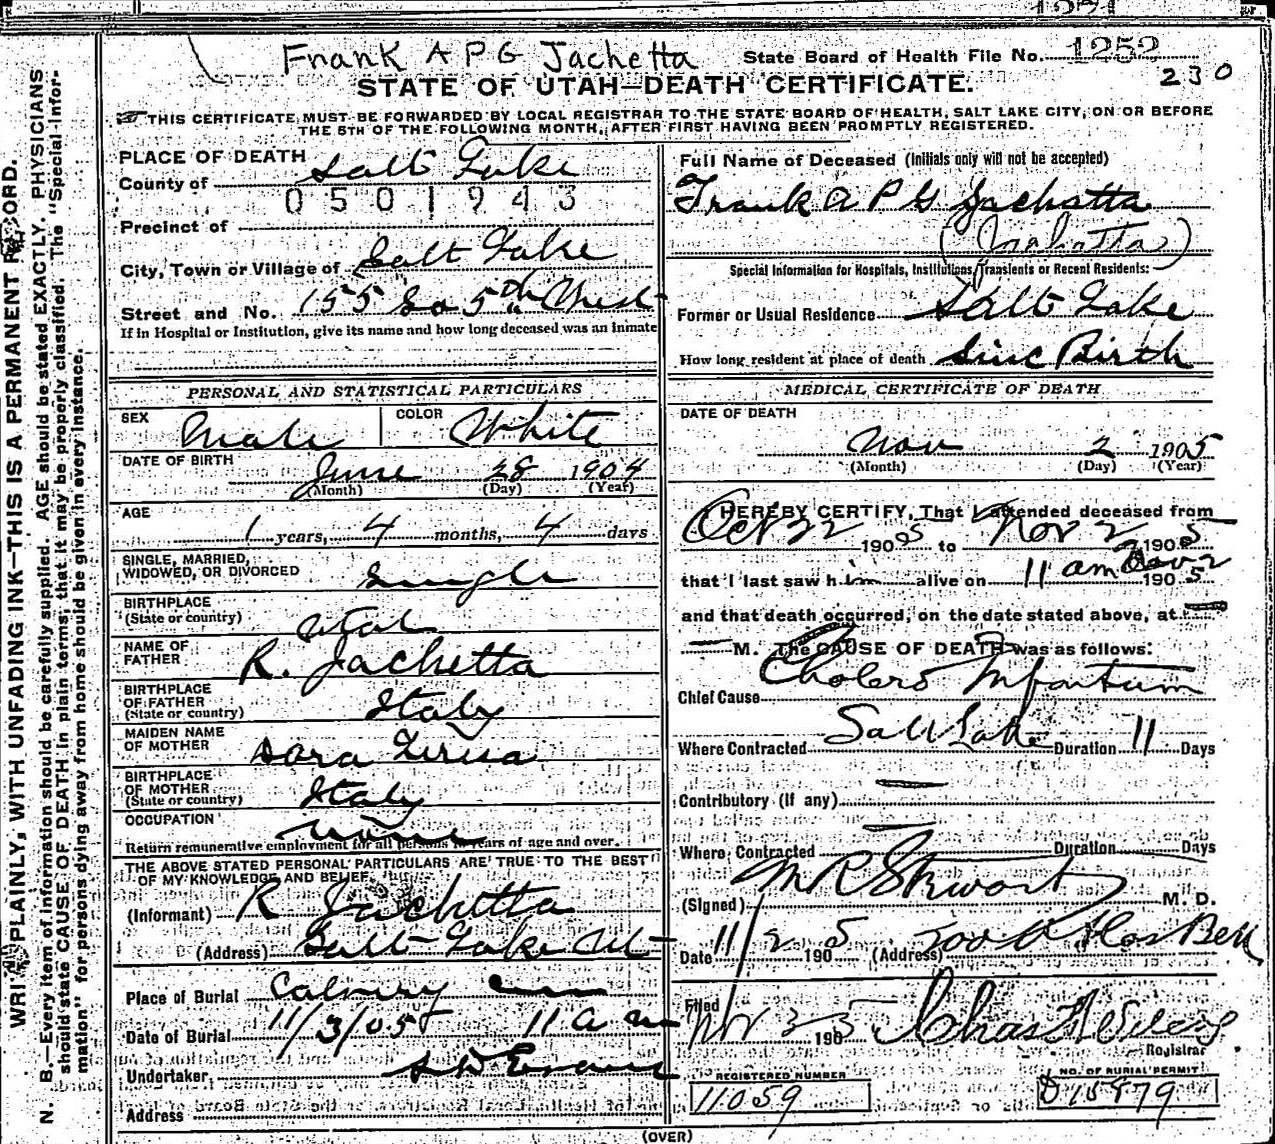 1251
Frank A P G Jachetta
State Board of Health File No. 1252
230
STATE OF UTAH—DEATH CERTIFICATE.
THIS CERTIFICATE MUST BE FORWARDED BY LOCAL REGISTRAR TO THE STATE BOARD OF HEALTH, SALT LAKE CITY, ON OR BEFORE
THE 5TH OF THE FOLLOWING MONTH, AFTER FIRST HAVING BEEN PROMPTLY REGISTERED.
WRITE PLAINLY, WITH UNFADING INK—THIS IS A PERMANENT RECORD.
N. B.—Every item of information should be carefully supplied. AGE should be stated EXACTLY. PHYSICIANS
should state CAUSE OF DEATH in plain terms, that it may be properly classified. The "Special Infor-
mation" for persons dying away from home should be given in every instance.
PLACE OF DEATH
County of Salt Lake
0501943
Precinct of
City, Town or Village of Salt Lake
Street and No. 155 So 5th West
If in Hospital or Institution, give its name and how long deceased was an inmate
PERSONAL AND STATISTICAL PARTICULARS
SEX Male COLOR White
DATE OF BIRTH June 28 1904
(Month) (Day) (Year)
AGE 1 years, 4 months, 4 days
SINGLE, MARRIED,
WIDOWED, OR DIVORCED Single
BIRTHPLACE
(State or country) Utah
NAME OF
FATHER R. Jachetta
BIRTHPLACE
OF FATHER
(State or country) Italy
MAIDEN NAME
OF MOTHER Sara Teresa
BIRTHPLACE
OF MOTHER
(State or country) Italy
OCCUPATION none
Return remunerative employment for all persons 10 years of age and over.
THE ABOVE STATED PERSONAL PARTICULARS ARE TRUE TO THE BEST
OF MY KNOWLEDGE AND BELIEF.
(Informant) R Jachetta
(Address) Salt Lake Ut
Place of Burial Calvery
Date of Burial 11/3/05 11 am
Undertaker S D Evans
Address
Full Name of Deceased (Initials only will not be accepted)
Frank A P G Jachatta
Special Information for Hospitals, Institutions, Transients or Recent Residents:
Former or Usual Residence Salt Lake
How long resident at place of death Sinc Birth
MEDICAL CERTIFICATE OF DEATH
DATE OF DEATH
Nov 2 1905
(Month) (Day) (Year)
I HEREBY CERTIFY, That I attended deceased from
Oct 22 1905 to Nov 2 1905
that I last saw him alive on 11 am Nov 2 1905
and that death occurred, on the date stated above, at
M. The CAUSE OF DEATH was as follows:
Chief Cause Cholera Infantum
Where Contracted Salt Lake Duration 11 Days
Contributory (If any)
Where Contracted Duration Days
(Signed) M R Stewart M. D.
Date 11/2 1905 (Address)
Filed Nov 3 1905 Chas
Registrar
REGISTERED NUMBER
11059
NO. OF BURIAL PERMIT
D 15879
(OVER)